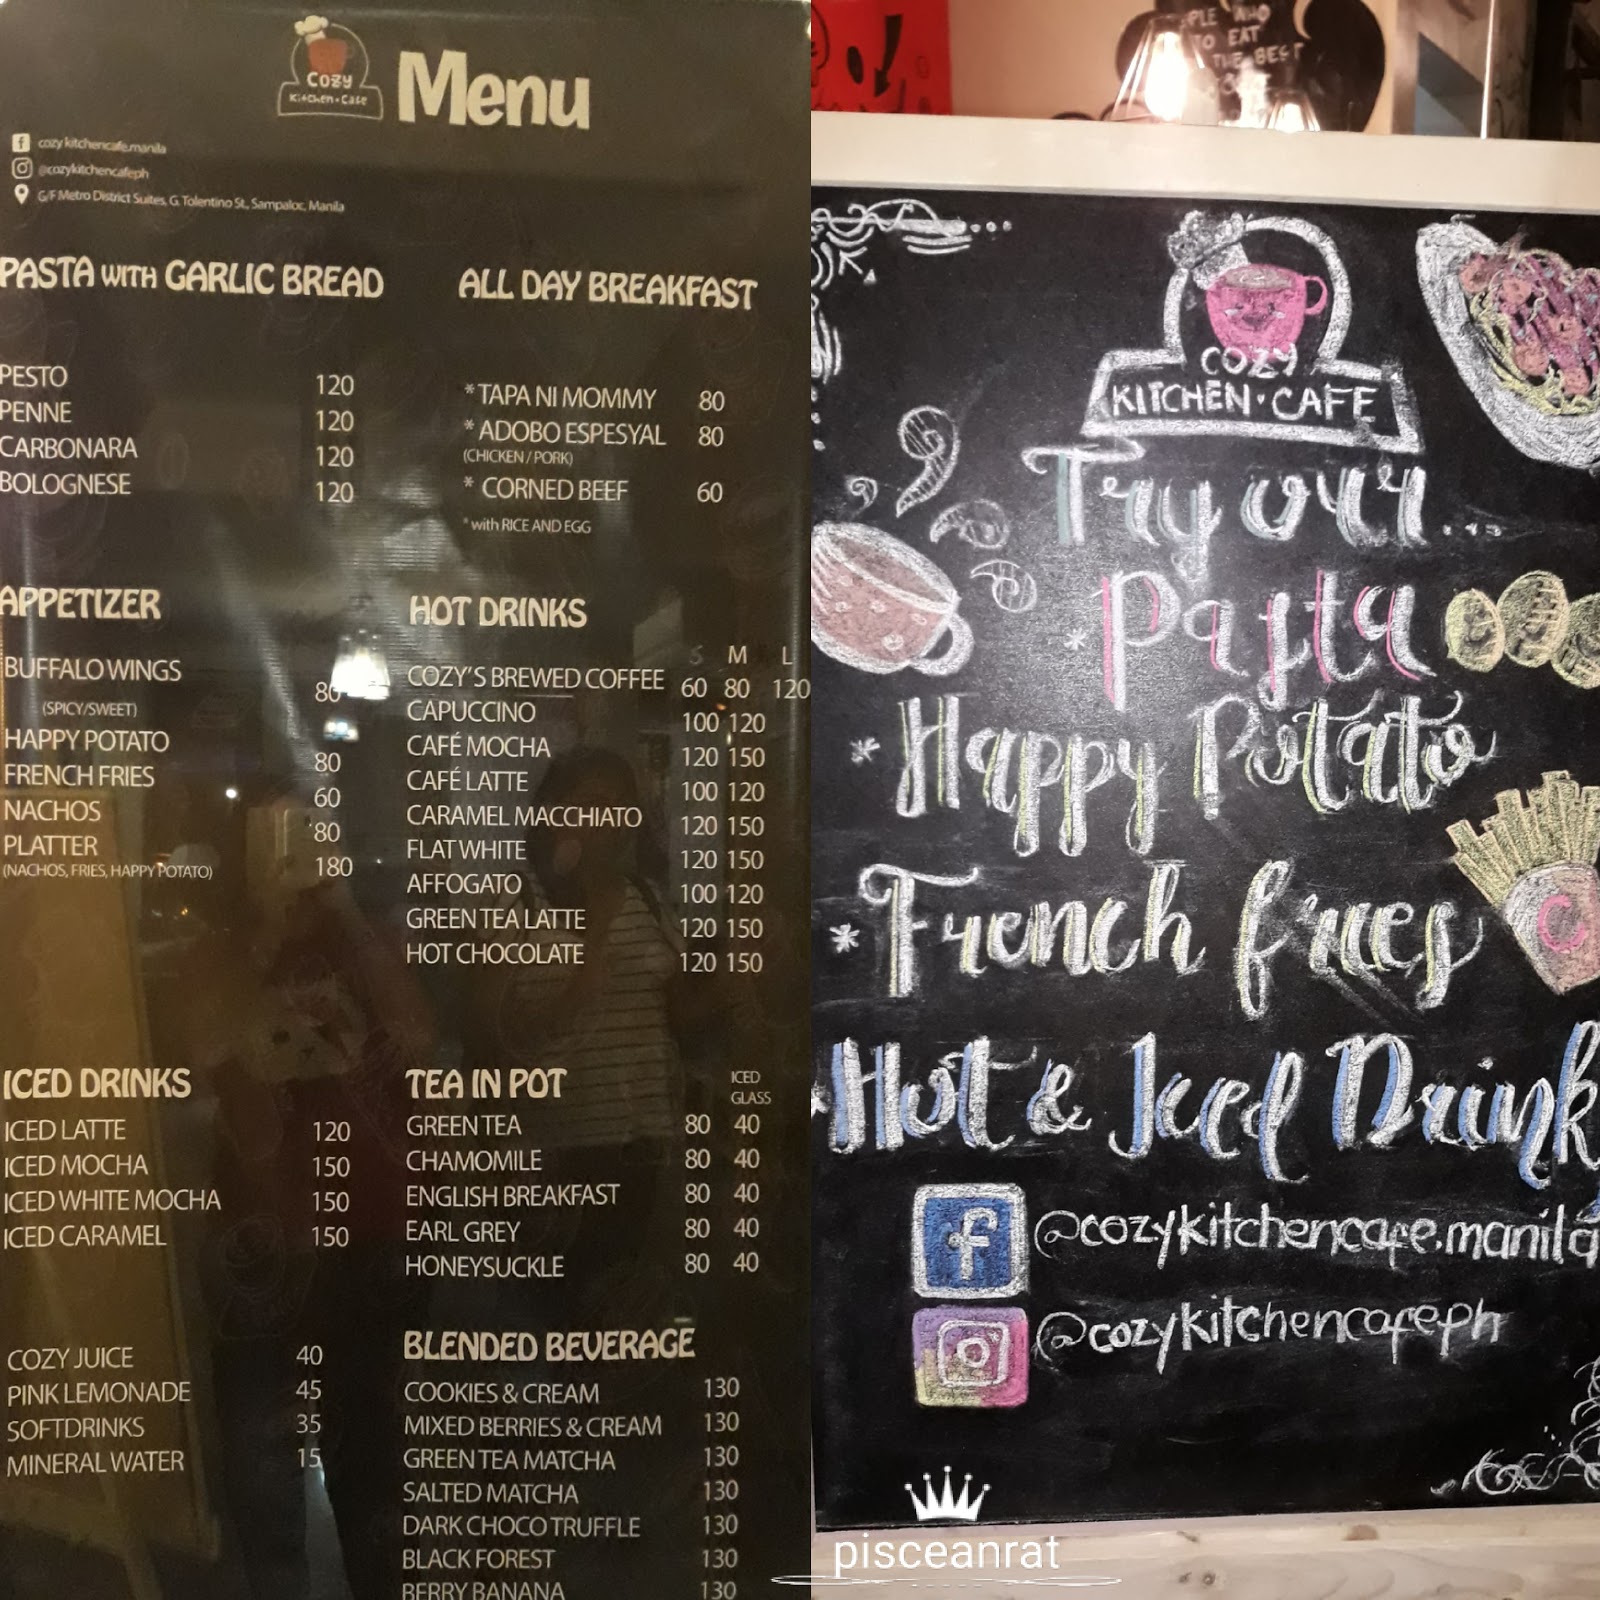 Cozy
Kitchen • Cafe
Menu
cozy kitchencafe.manila
@cozykitchencafeph
G/F Metro District Suites, G. Tolentino St., Sampaloc, Manila
PASTA WITH GARLIC BREAD
PESTO 120
PENNE 120
CARBONARA 120
BOLOGNESE 120
ALL DAY BREAKFAST
* TAPA NI MOMMY 80
* ADOBO ESPESYAL 80
(CHICKEN / PORK)
* CORNED BEEF 60
* with RICE AND EGG
APPETIZER
BUFFALO WINGS 80
(SPICY/SWEET)
HAPPY POTATO 80
FRENCH FRIES 60
NACHOS 80
PLATTER 180
(NACHOS, FRIES, HAPPY POTATO)
HOT DRINKS
S M L
COZY'S BREWED COFFEE 60 80 120
CAPUCCINO 100 120
CAFÉ MOCHA 120 150
CAFÉ LATTE 100 120
CARAMEL MACCHIATO 120 150
FLAT WHITE 120 150
AFFOGATO 100 120
GREEN TEA LATTE 120 150
HOT CHOCOLATE 120 150
ICED DRINKS
ICED LATTE 120
ICED MOCHA 150
ICED WHITE MOCHA 150
ICED CARAMEL 150
COZY JUICE 40
PINK LEMONADE 45
SOFTDRINKS 35
MINERAL WATER 15
TEA IN POT ICED
GLASS
GREEN TEA 80 40
CHAMOMILE 80 40
ENGLISH BREAKFAST 80 40
EARL GREY 80 40
HONEYSUCKLE 80 40
BLENDED BEVERAGE
COOKIES & CREAM 130
MIXED BERRIES & CREAM 130
GREEN TEA MATCHA 130
SALTED MATCHA 130
DARK CHOCO TRUFFLE 130
BLACK FOREST 130
BERRY BANANA 130
WHO
TO EAT
THE BEST
COZY
KITCHEN • CAFE
Try our...
* Pasta
* Happy Potato
* French fries
Hot & Iced Drink
C
f @cozykitchencafe.manila
@cozykitchencafeph
pisceanrat